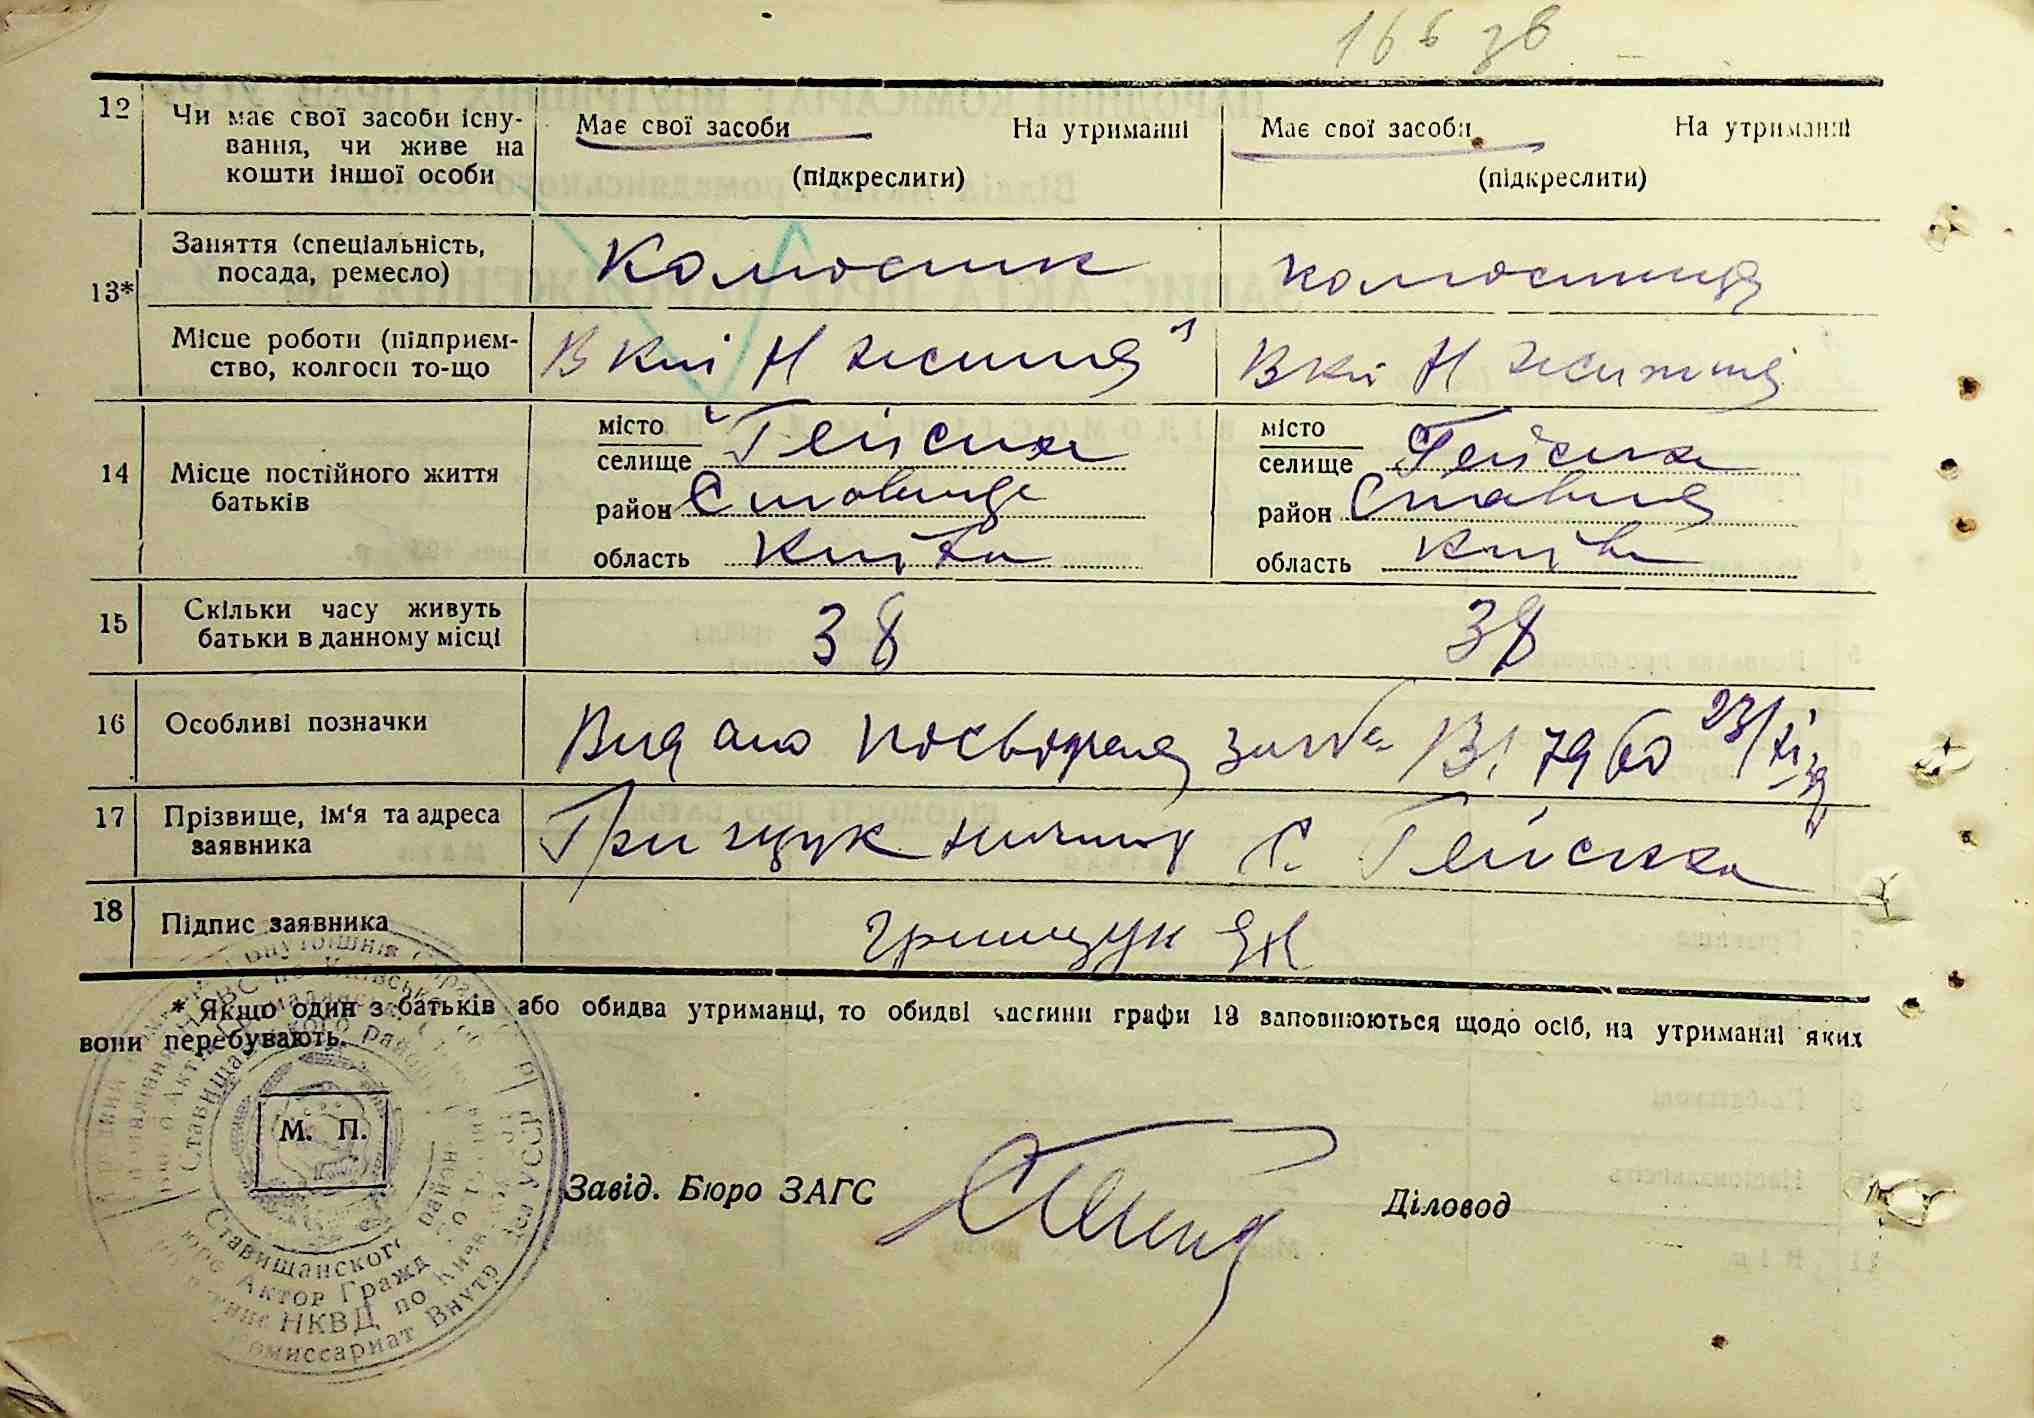 166 зв
12 Чи має свої засоби існу-
вання, чи живе на
кошти іншої особи
Має свої засоби На утриманні
(підкреслити)
Має свої засоби На утриманні
(підкреслити)
13*
Заняття (спеціальність,
посада, ремесло)
Колгосник
колгосниця
Місце роботи (підприєм-
ство, колгосп то-що
В кол Н життя
В кол Н життя
14 Місце постійного життя
батьків
місто
селище Гейсиха
район Ставище
область Київ
місто
селище Гейсиха
район Ставище
область Київ
15 Скільки часу живуть
батьки в данному місці
38
38
16 Особливі позначки
Видано посвідченя за № 7960 23/XI
17 Прізвище, ім'я та адреса
заявника
Грищук с. Гейсиха
18 Підпис заявника
Грищук
* Якщо один з батьків або обидва утриманці, то обидві частини графи 13 заповнюються щодо осіб, на утриманні яких
вони перебувають.
М. П.
Ставищанского район
Актор Гражд
НКВД по Киев
омиссариат Внутр
УССР
Завід. Бюро ЗАГС
Діловод